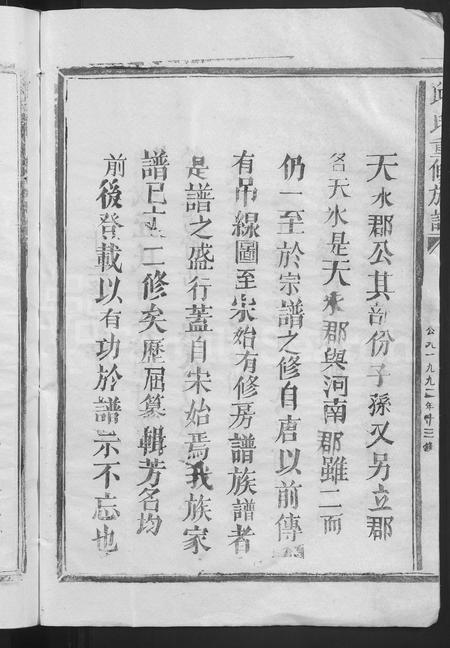 天水郡公其部份子孫又另立郡
名天水是天水郡與河南郡雖二而
仍一至於宗譜之修自唐以前傳
有吊線圖至宋始有修房譜族譜者
是譜之盛行蓋自宋始焉我族家
譜已二修矣歷屆纂輯芳名均
前後登載以有功於譜示不忘也
邱氏重修族譜
公元一九九二年